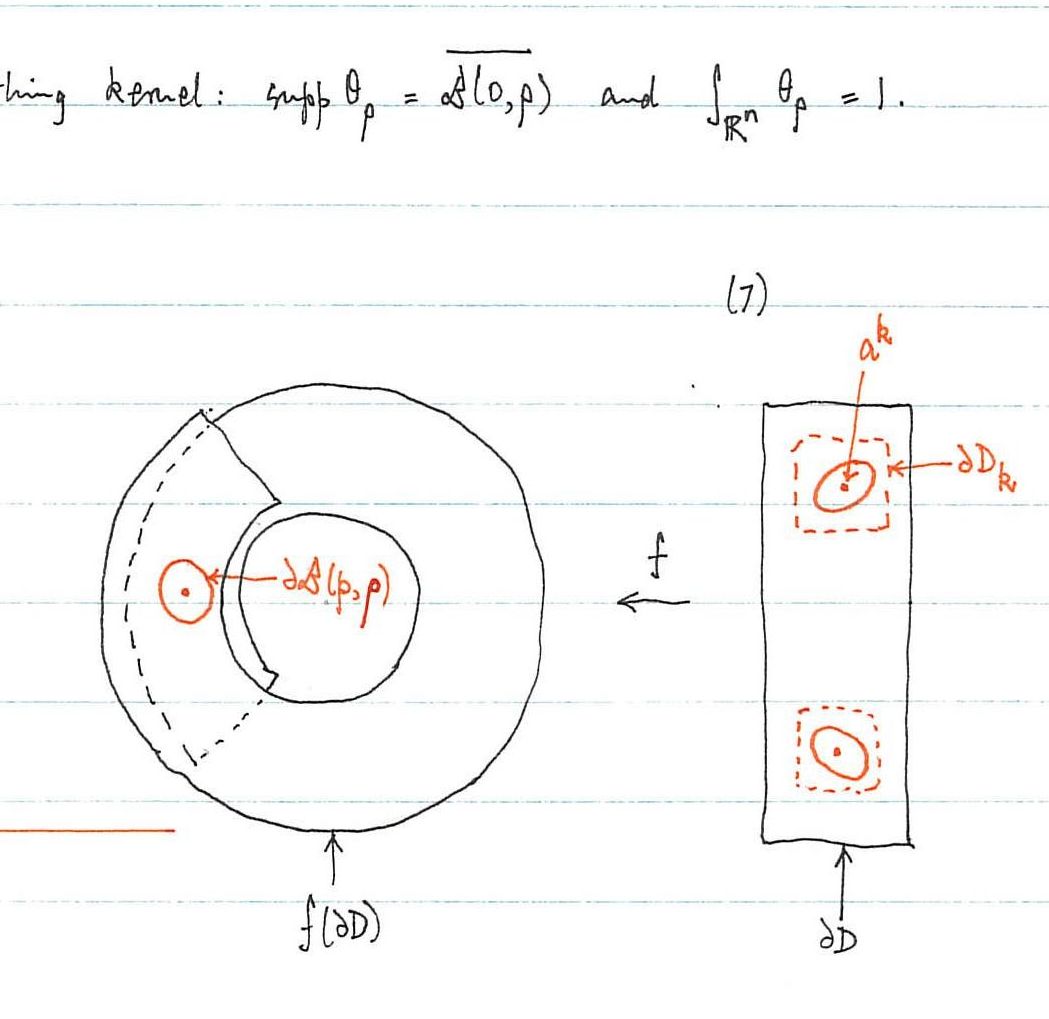 thing kernel: supp θ_ρ = \overline{ℬ(0,ρ)} and ∫_{ℝⁿ} θ_ρ = 1.
(7)
a^k
∂D_k
f
∂ℬ(p,ρ)
f(∂D)
∂D